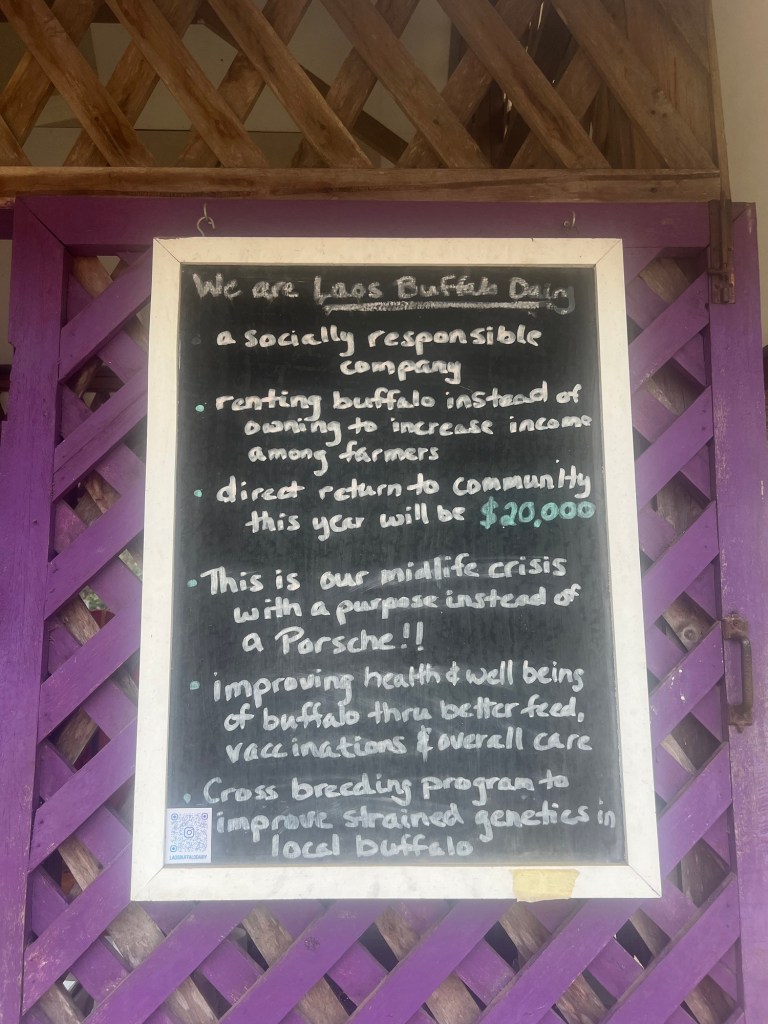 We are Laos Buffalo Dairy
a socially responsible
company
• renting buffalo instead of
owning to increase income
among farmers
• direct return to community
this year will be $20,000
• This is our midlife crisis
with a purpose instead of
a Porsche!!
• improving health & well being
of buffalo thru better feed,
vaccinations & overall care
• Cross breeding program to
improve strained genetics in
local buffalo
LAOSBUFFALODAIRY